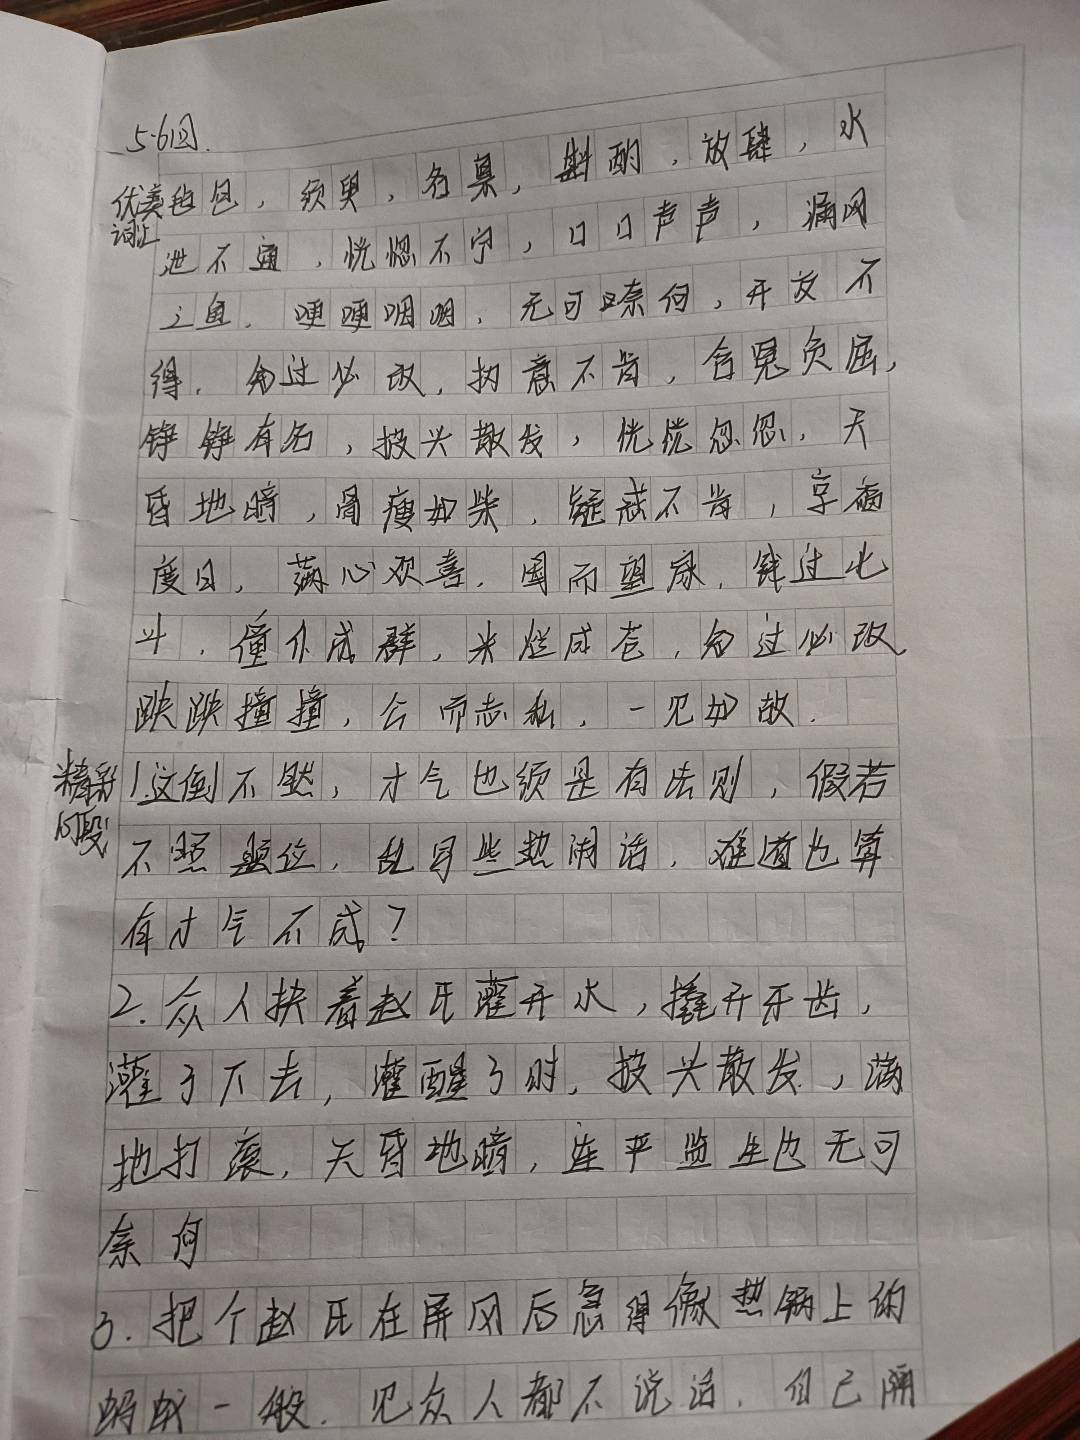 5.6回.
优美词汇
包，须臾，名臬，斟酌，放肆，水
泄不通，恍惚不宁，口口声声，漏网
之鱼．哽哽咽咽，无可奈何，开交不
得．勿过必改，执意不肯，含冤负屈，
铮铮有名，披头散发，恍恍忽忽．天
昏地暗，骨瘦如柴．疑惑不肯，享福
度日，满心欢喜．因而望家．钱过北
斗．僮仆成群，米烂成苍．勿过必改
跌跌撞撞，公而忘私．一见如故．
精彩片段
1.这倒不然，才气也须是有法则，假若
不照题位，乱写些热闹话，难道也算
有才气不成？
2.众人扶着赵氏灌开水，撬开牙齿，
灌了下去，灌醒了时．披头散发，满
地打滚．天昏地暗，连严监生也无可
奈何
3.把个赵氏在屏风后急得像热锅上的
蚂蚁一般．见众人都不说话．自己隔